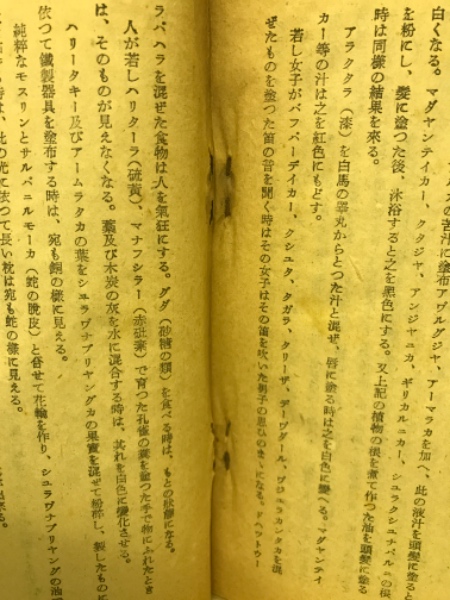 の苦汁に塗布アヴルグジヤ、アーマラカを加へ、此の液汁を頭髮に塗ると
白くなる。マダヤンテイカー、クタジヤ、アンジヤニカ、ギリカルニカー、シユラクシユナパルニの根
を粉にし、髮に塗つた後、沐浴すると之を黑色にする。又上記の植物の根を煮て作つた油を頭髮に塗る
時は同樣の結果を來る。
アラクタラ（漆）を白馬の睾丸からとつた汁と混ぜ、唇に塗る時は之を白色に變へる。マダヤンテイ
カー等の汁は之を紅色にもどす。
若し女子がバフパーデイカー、クシユタ、タガラ、タリーザ、デーワダール、ヴジラカンタカを混
ぜたものを塗つた笛の音を聞く時はその女子はその笛を吹いた男子の思ひのまゝになる。ドハツトウー
ラバハラを混ぜた食物は人を氣狂にする。グダ（砂糖の類）を食べる時は、もとの狀態になる。
人が若しハリターラ（硫黃）、マナフシラー（赤砒素）で育つた孔雀の糞を塗つた手で物にふれたとき
は、そのものが見えなくなる。藁及び木炭の灰を水に混合する時は、其れを白色に變化させる。
ハリータキー及びアームラタカの葉をシユラヴナプリヤングカの果實を混ぜて粉碎し、製したものに
依つて鐵製器具を塗布する時は、宛も銅の樣に見える。
純粹なモスリンとサルパニルモーカ（蛇の脫皮）と倂せて花輪を作り、シユラヴナプリヤングの油
時は、此の光に依つて長い枕は宛も蛇の樣に見える。